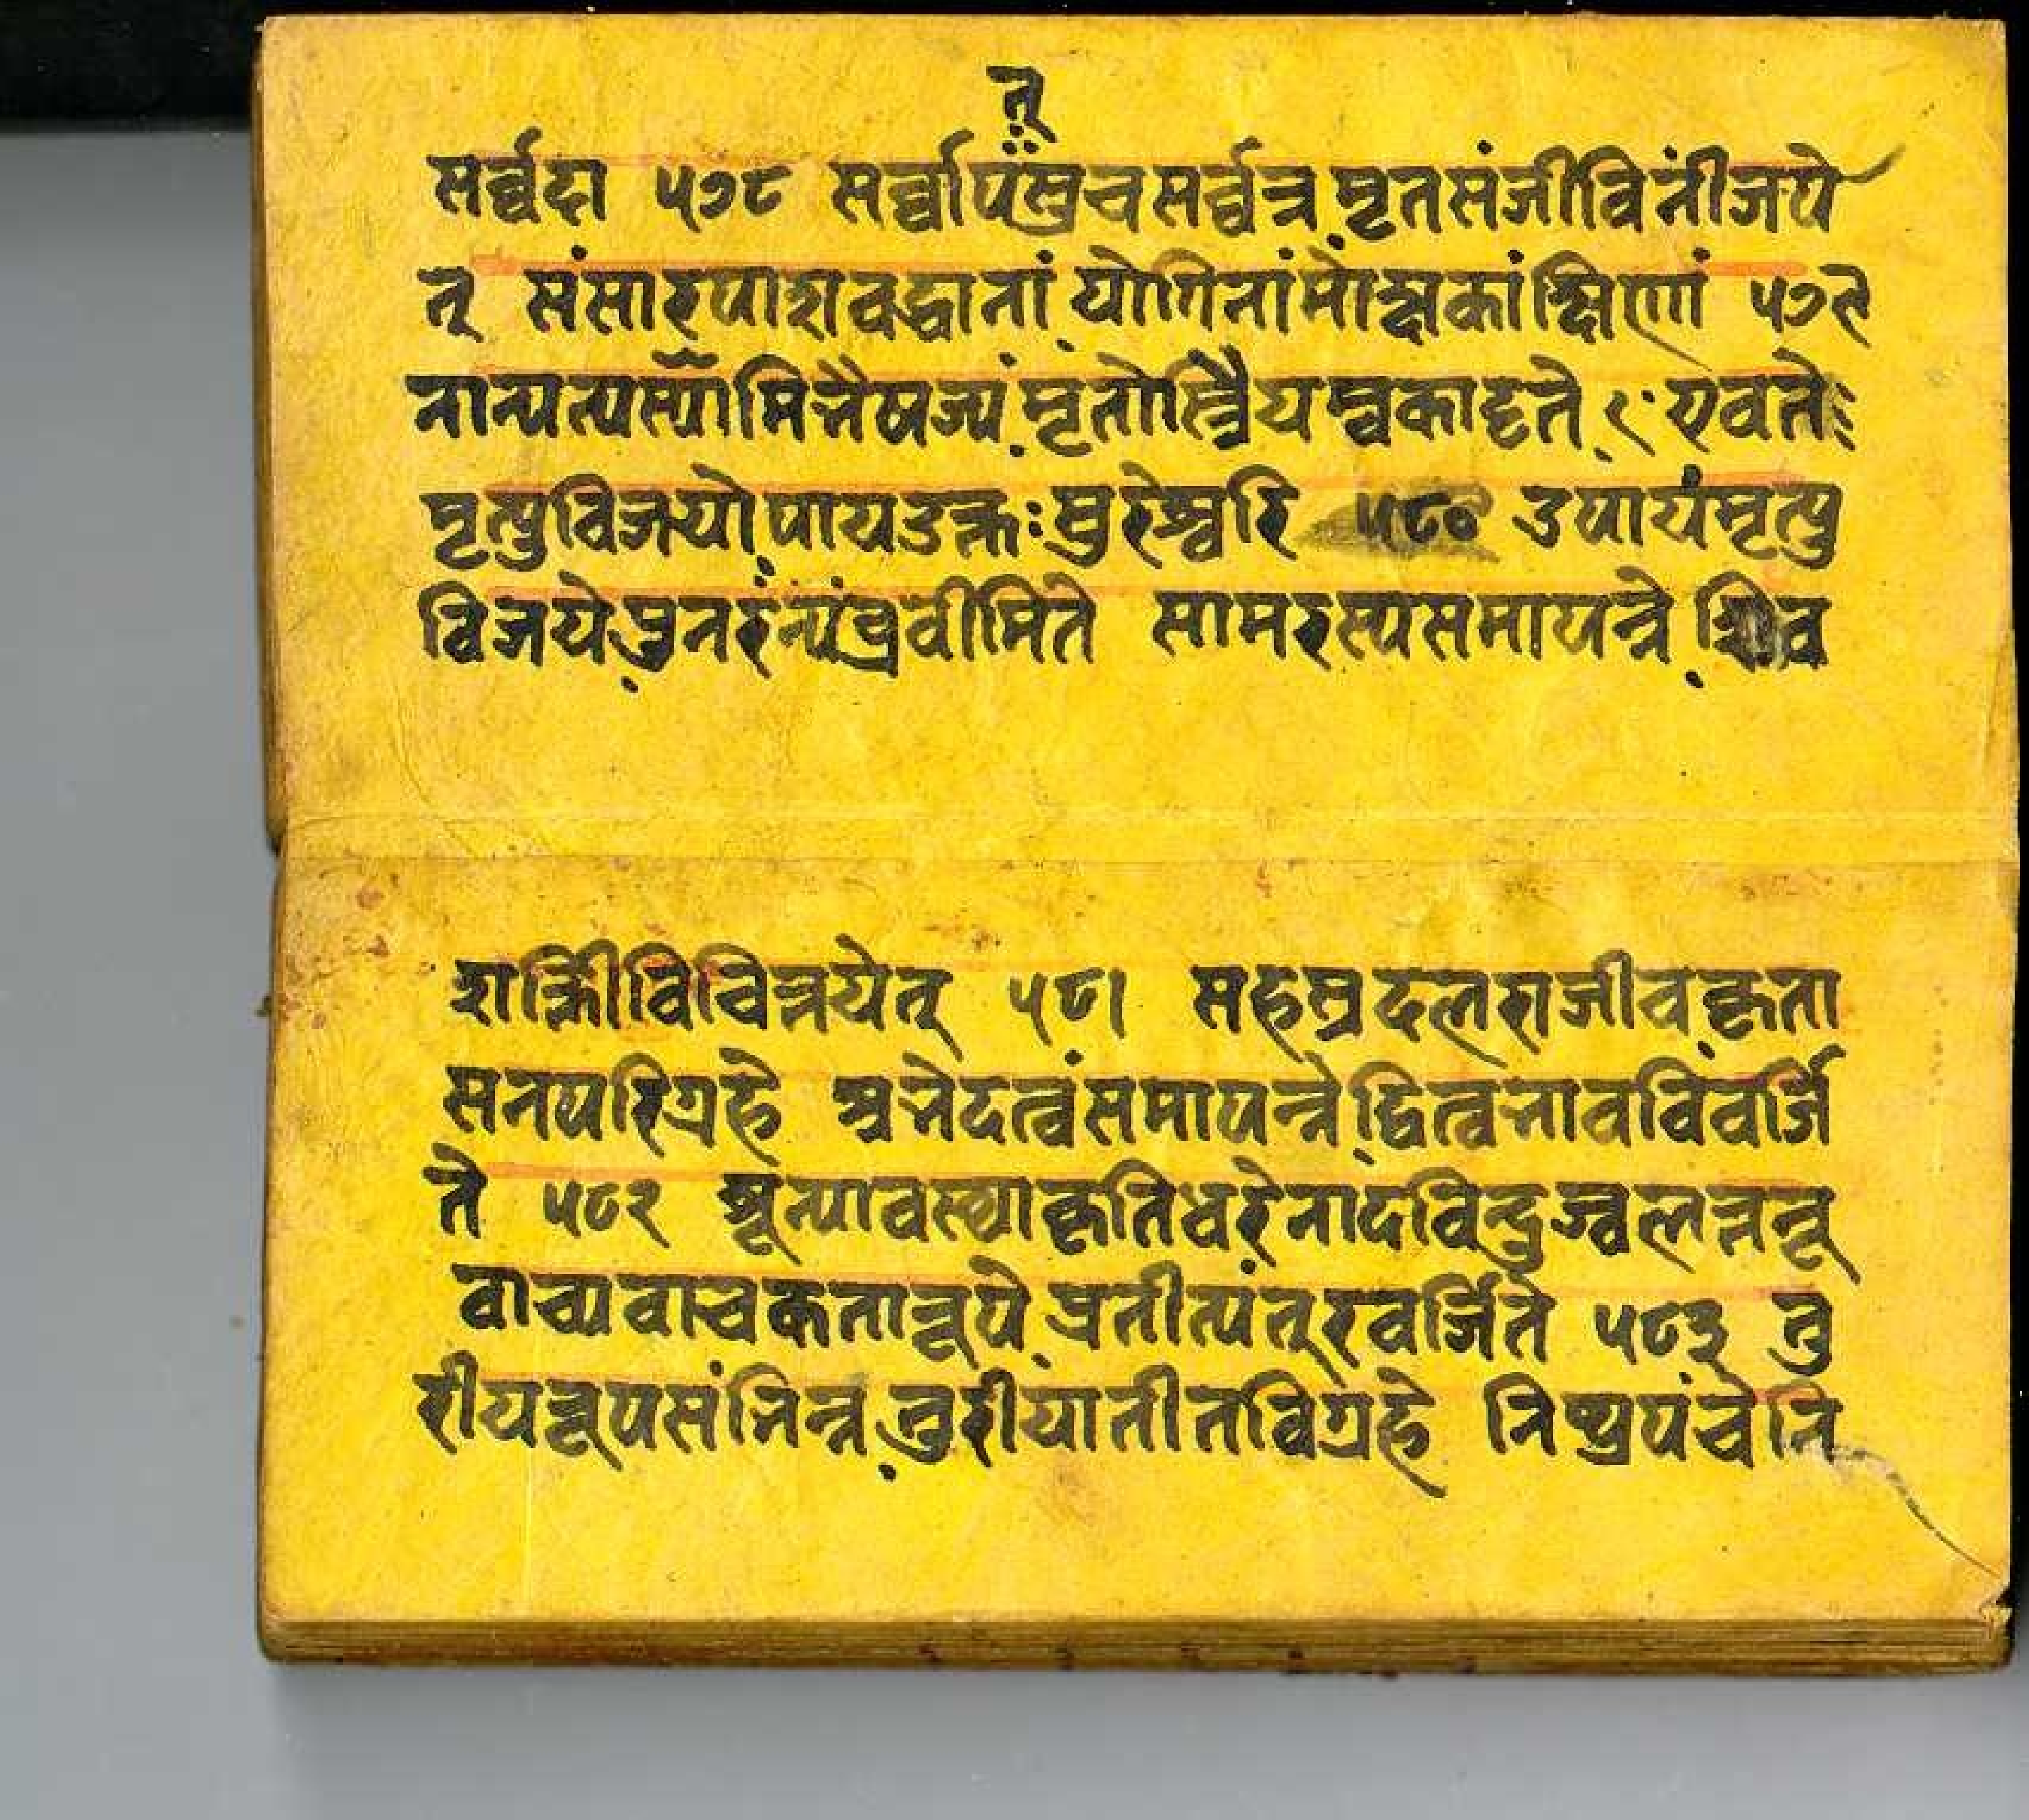 त्
सर्व्वदा ५७८ सर्व्वापसुचसर्व्वत्र मृतसंजीविनींजपे
त् संसारपाशवद्धानां योगिनां मोक्षकांक्षिणां ५७९
नान्यत्पस्यामिभैषज्यं मृतोस्त्रैयम्वकादृते एवते
मृत्युविजयोपायउक्तःसुरेश्वरि ५८० उपायंमृत्यु
विजयेपुनरंन्यंब्रवीमिते सामरस्यसमापन्ने शिव
शक्तीविचिन्तयेत् ५८१ सहस्रदलराजीवकृता
सनपरिग्रहे अभेदत्वंसमापन्नेद्वित्वभावविवर्जि
ते ५८२ शून्यावस्थाकृतिधरेनादविन्दुज्वलत्तनू
वाच्यवाचकतारूपे प्रतीत्यंतरवर्जिते ५८३ तु
रीयरूपसंभिन्न तुरीयातीतविग्रहे निष्प्रपंचेनि